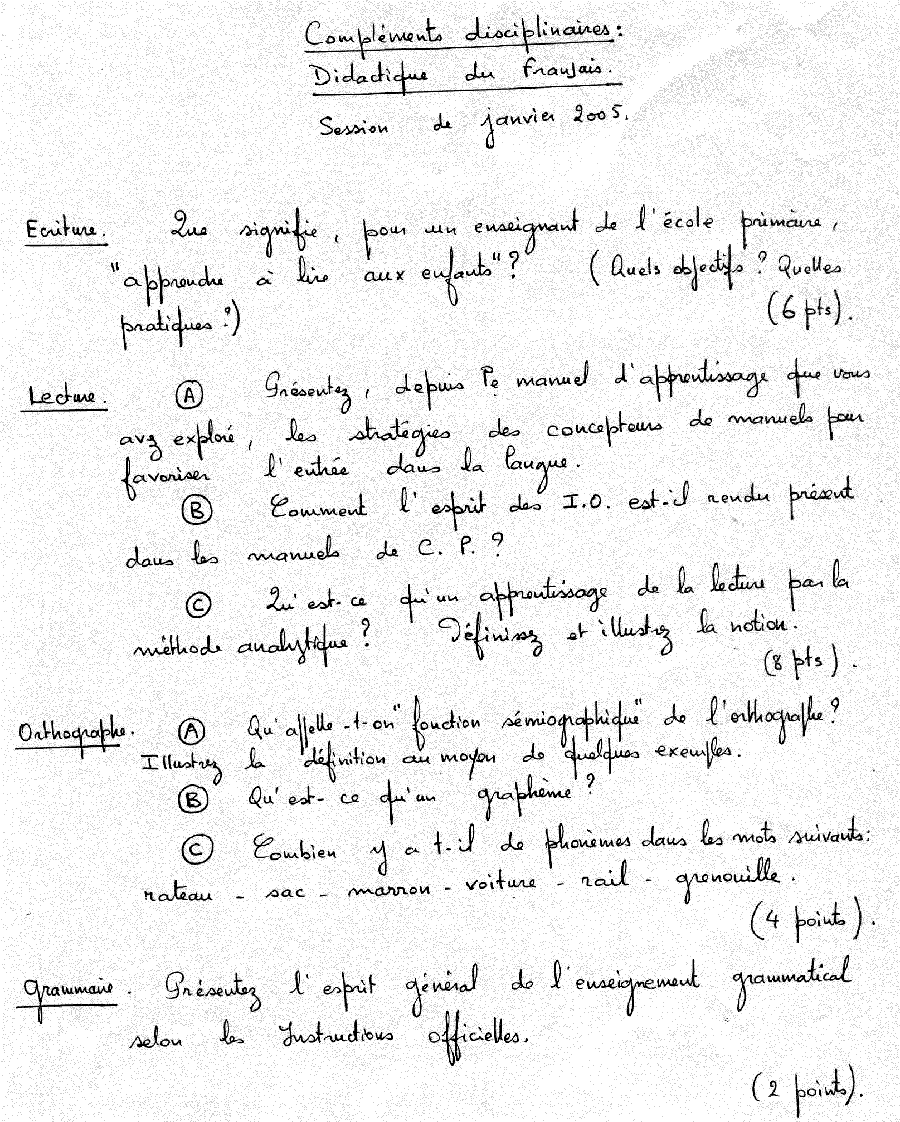 Compléments disciplinaires :
Didactique du Français.
Session de janvier 2005.
Ecriture. Que signifie, pour un enseignant de l'école primaire,
"apprendre à lire aux enfants" ? (Quels objectifs ? Quelles
pratiques ?) (6 pts).
Lecture. (A) Présentez, depuis le manuel d'apprentissage que vous
avez exploré, les stratégies des concepteurs de manuels pour
favoriser l'entrée dans la langue.
(B) Comment l'esprit des I.O. est-il rendu présent
dans les manuels de C.P. ?
(C) Qu'est-ce qu'un apprentissage de la lecture par la
méthode analytique ? Définissez et illustrez la notion.
(8 pts).
Orthographe. (A) Qu'appelle-t-on "fonction sémiographique" de l'orthographe ?
Illustrez la définition au moyen de quelques exemples.
(B) Qu'est-ce qu'un graphème ?
(C) Combien y a t-il de phonèmes dans les mots suivants :
rateau - sac - marron - voiture - rail - grenouille.
(4 points).
Grammaire. Présentez l'esprit général de l'enseignement grammatical
selon les Instructions officielles.
(2 points).